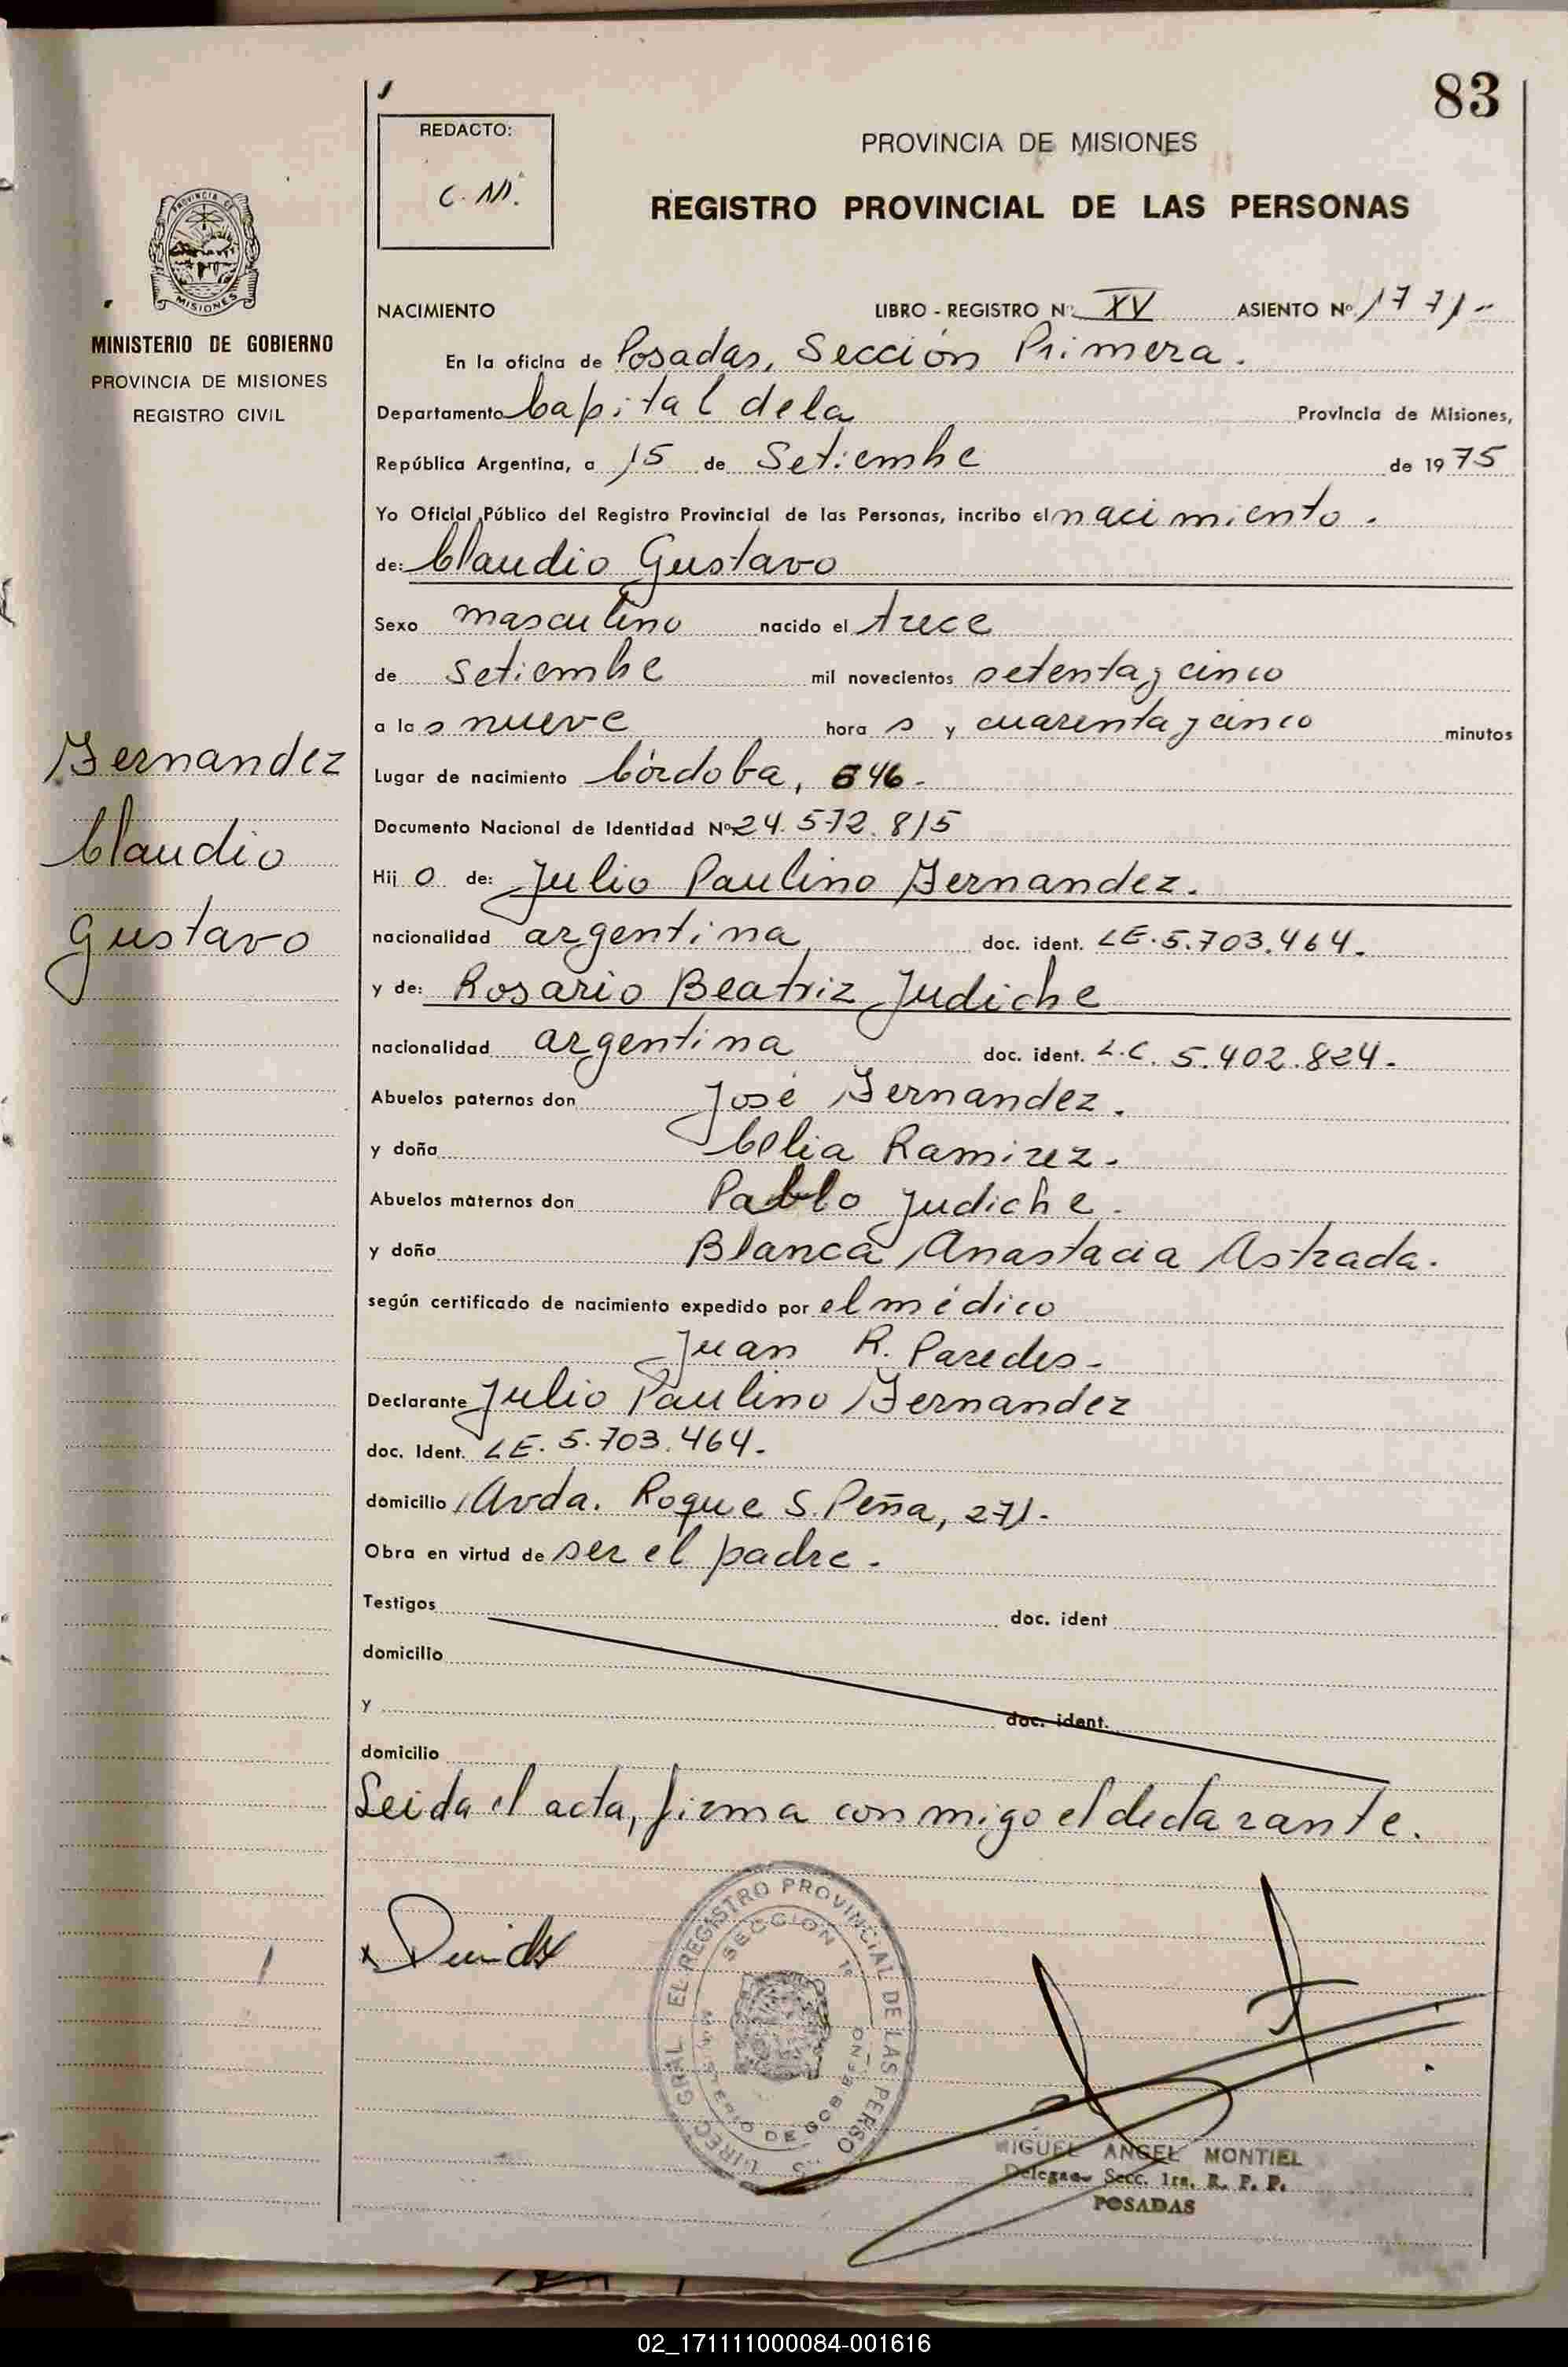 83
REDACTO:
C. M.
PROVINCIA DE MISIONES
REGISTRO PROVINCIAL DE LAS PERSONAS
MISIONES
MINISTERIO DE GOBIERNO
PROVINCIA DE MISIONES
REGISTRO CIVIL
Fernandez
Claudio
Gustavo
NACIMIENTO LIBRO - REGISTRO Nº XV ASIENTO Nº 1771-
En la oficina de Posadas, Sección Primera.
Departamento Capital de la Provincia de Misiones,
República Argentina, a 15 de Setiembre de 1975
Yo Oficial Público del Registro Provincial de las Personas, incribo el nacimiento.
de: Claudio Gustavo
Sexo masculino nacido el trece
de Setiembre mil novecientos setenta y cinco
a las nueve horas y cuarenta y cinco minutos
Lugar de nacimiento Córdoba, 646-
Documento Nacional de Identidad Nº 24.572.815
Hijo de: Julio Paulino Fernandez.
nacionalidad argentina doc. ident. LE. 5.703.464.
y de: Rosario Beatriz Judiche
nacionalidad argentina doc. ident. L.C. 5.402.824-
Abuelos paternos don José Fernandez.
y doña Celia Ramirez.
Abuelos maternos don Pablo Judiche.
y doña Blanca Anastacia Astrada.
según certificado de nacimiento expedido por el médico
Juan R. Paredes-
Declarante Julio Paulino Fernandez
doc. Ident. LE. 5.703.464.
domicilio Avda. Roque S. Peña, 271-
Obra en virtud de ser el padre.
Testigos doc. ident
domicilio
y doc. ident.
domicilio
Leida el acta, firma conmigo el declarante.
EL REGISTRO PROVINCIAL DE LAS PERSO
SECCION 1º
DE GOBIERNO
MIGUEL ANGEL MONTIEL
Delegado Secc. 1ra. R. P. P.
POSADAS
02_171111000084-001616